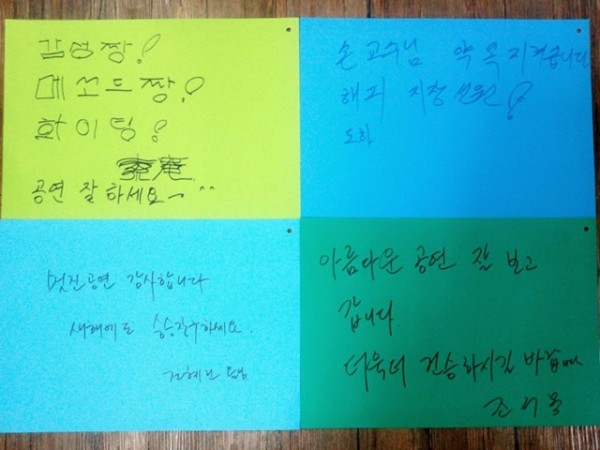 감성짱!
메쏘드짱!
화이팅!
공연 잘하세요~^^
손교수님 약속지켰습니다
해피
도화
멋진공연 감사합니다
새해에도 승승장구하세요.
아름다운 공연 잘 보고
갑니다.
더욱더 건승하시길 바랍니다